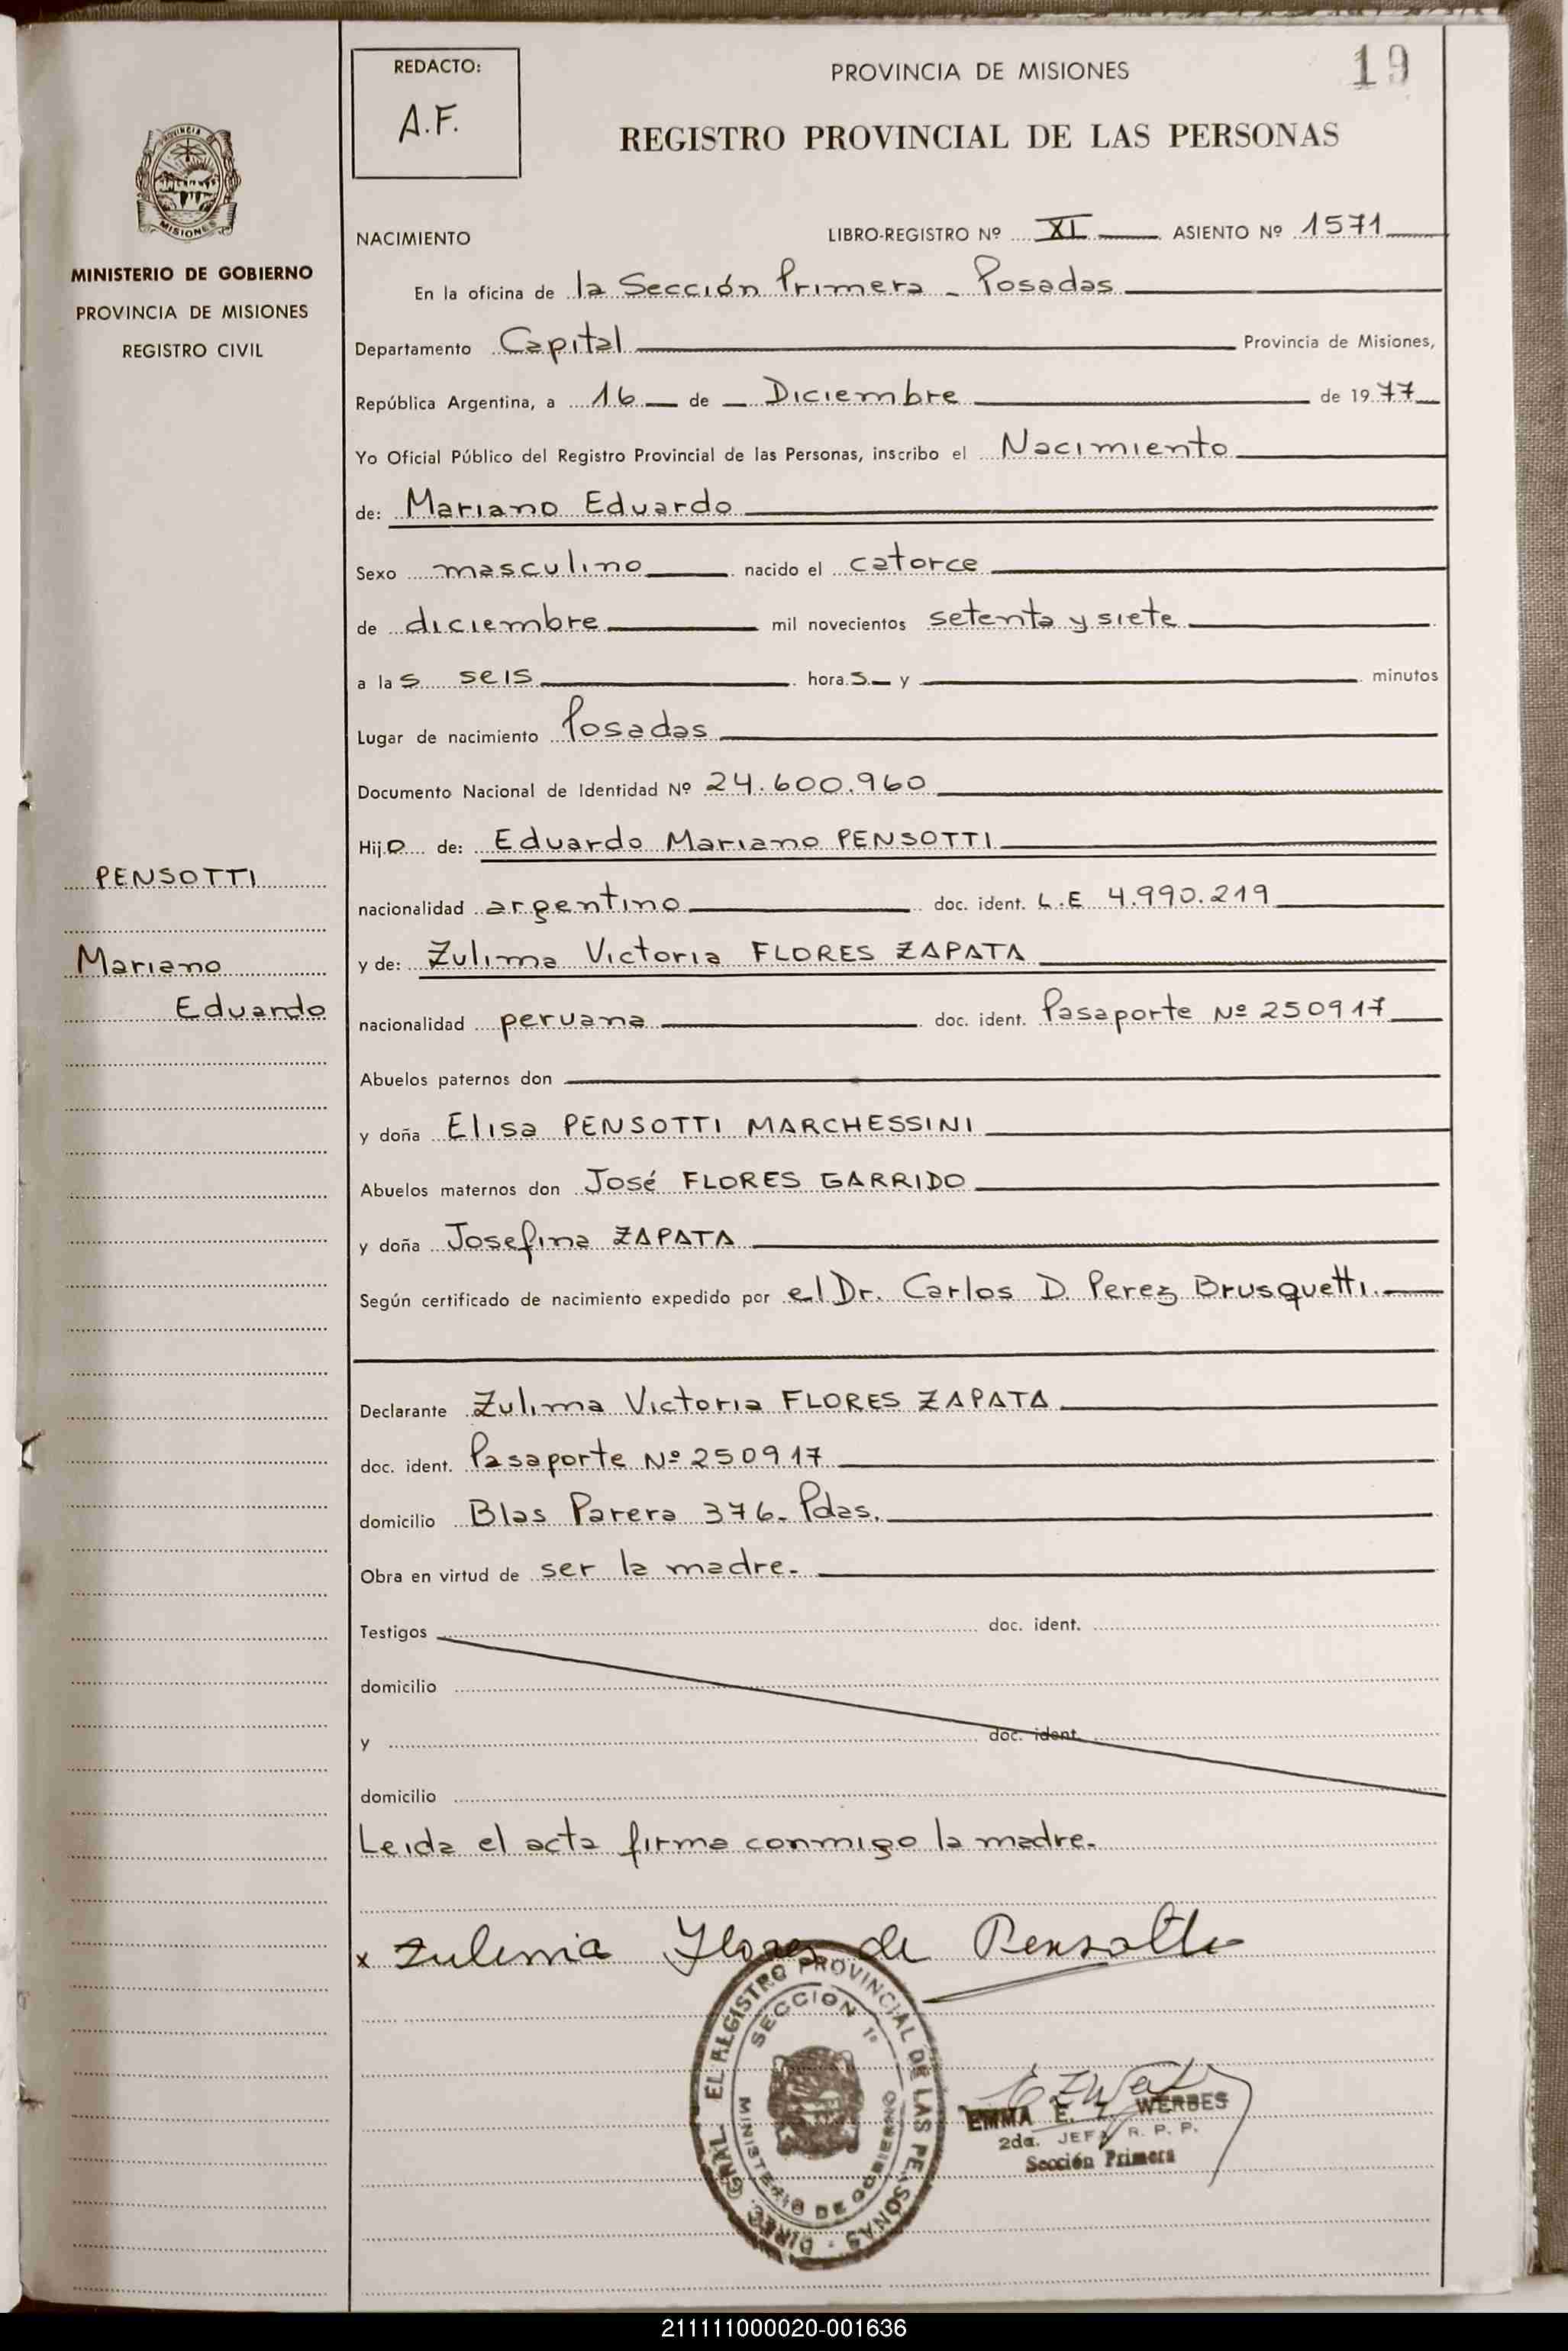 REDACTO:
A.F.
PROVINCIA DE MISIONES
19
REGISTRO PROVINCIAL DE LAS PERSONAS
PROVINCIA DE
MISIONES
MINISTERIO DE GOBIERNO
PROVINCIA DE MISIONES
REGISTRO CIVIL
NACIMIENTO LIBRO-REGISTRO Nº XI ASIENTO Nº 1571
En la oficina de la Sección Primera - Posadas
Departamento Capital Provincia de Misiones,
República Argentina, a 16 de Diciembre de 1977
Yo Oficial Público del Registro Provincial de las Personas, inscribo el Nacimiento
de: Mariano Eduardo
Sexo masculino nacido el catorce
de diciembre mil novecientos setenta y siete
a las seis horas y minutos
Lugar de nacimiento Posadas
Documento Nacional de Identidad Nº 24.600.960
Hijo de: Eduardo Mariano PENSOTTI
PENSOTTI
nacionalidad argentino doc. ident. L.E 4.990.219
Mariano
y de: Zulima Victoria FLORES ZAPATA
Eduardo
nacionalidad peruana doc. ident. Pasaporte Nº 250917
Abuelos paternos don
y doña Elisa PENSOTTI MARCHESSINI
Abuelos maternos don José FLORES GARRIDO
y doña Josefina ZAPATA
Según certificado de nacimiento expedido por el Dr. Carlos D. Perez Brusquetti.
Declarante Zulima Victoria FLORES ZAPATA
doc. ident. Pasaporte Nº 250917
domicilio Blas Parera 376- Pdas.
Obra en virtud de ser la madre.
Testigos doc. ident.
domicilio
y doc. ident.
domicilio
Leida el acta firma conmigo la madre.
x Zulema Flores de Pensotti
DIREC. GRAL. EL REGISTRO PROVINCIAL DE LAS PERSONAS
SECCION 1ª
MINISTERIO DE GOBIERNO
EMMA E. Z WERBES
2da. JEFA R. P. P.
Sección Primera
211111000020-001636